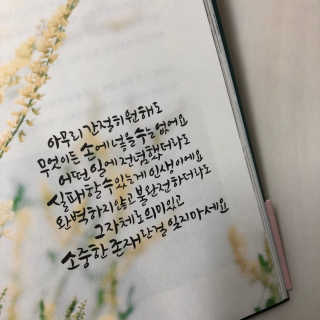 아무리 간절히 원해도
무엇이든 손에 넣을 수는 없어요
어떤 일에 전념했더라도
실패할 수 있는게 인생이에요
완벽하지 않고 불완전하더라도
그 자체로 의미있고
소중한 존재란걸 잊지마세요